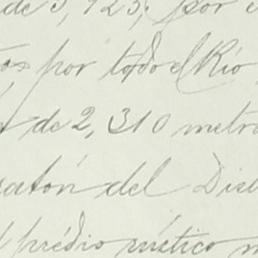 de 3,925; por e
por todo el Río
de 2,310 metro
del Dis
prédio rústico